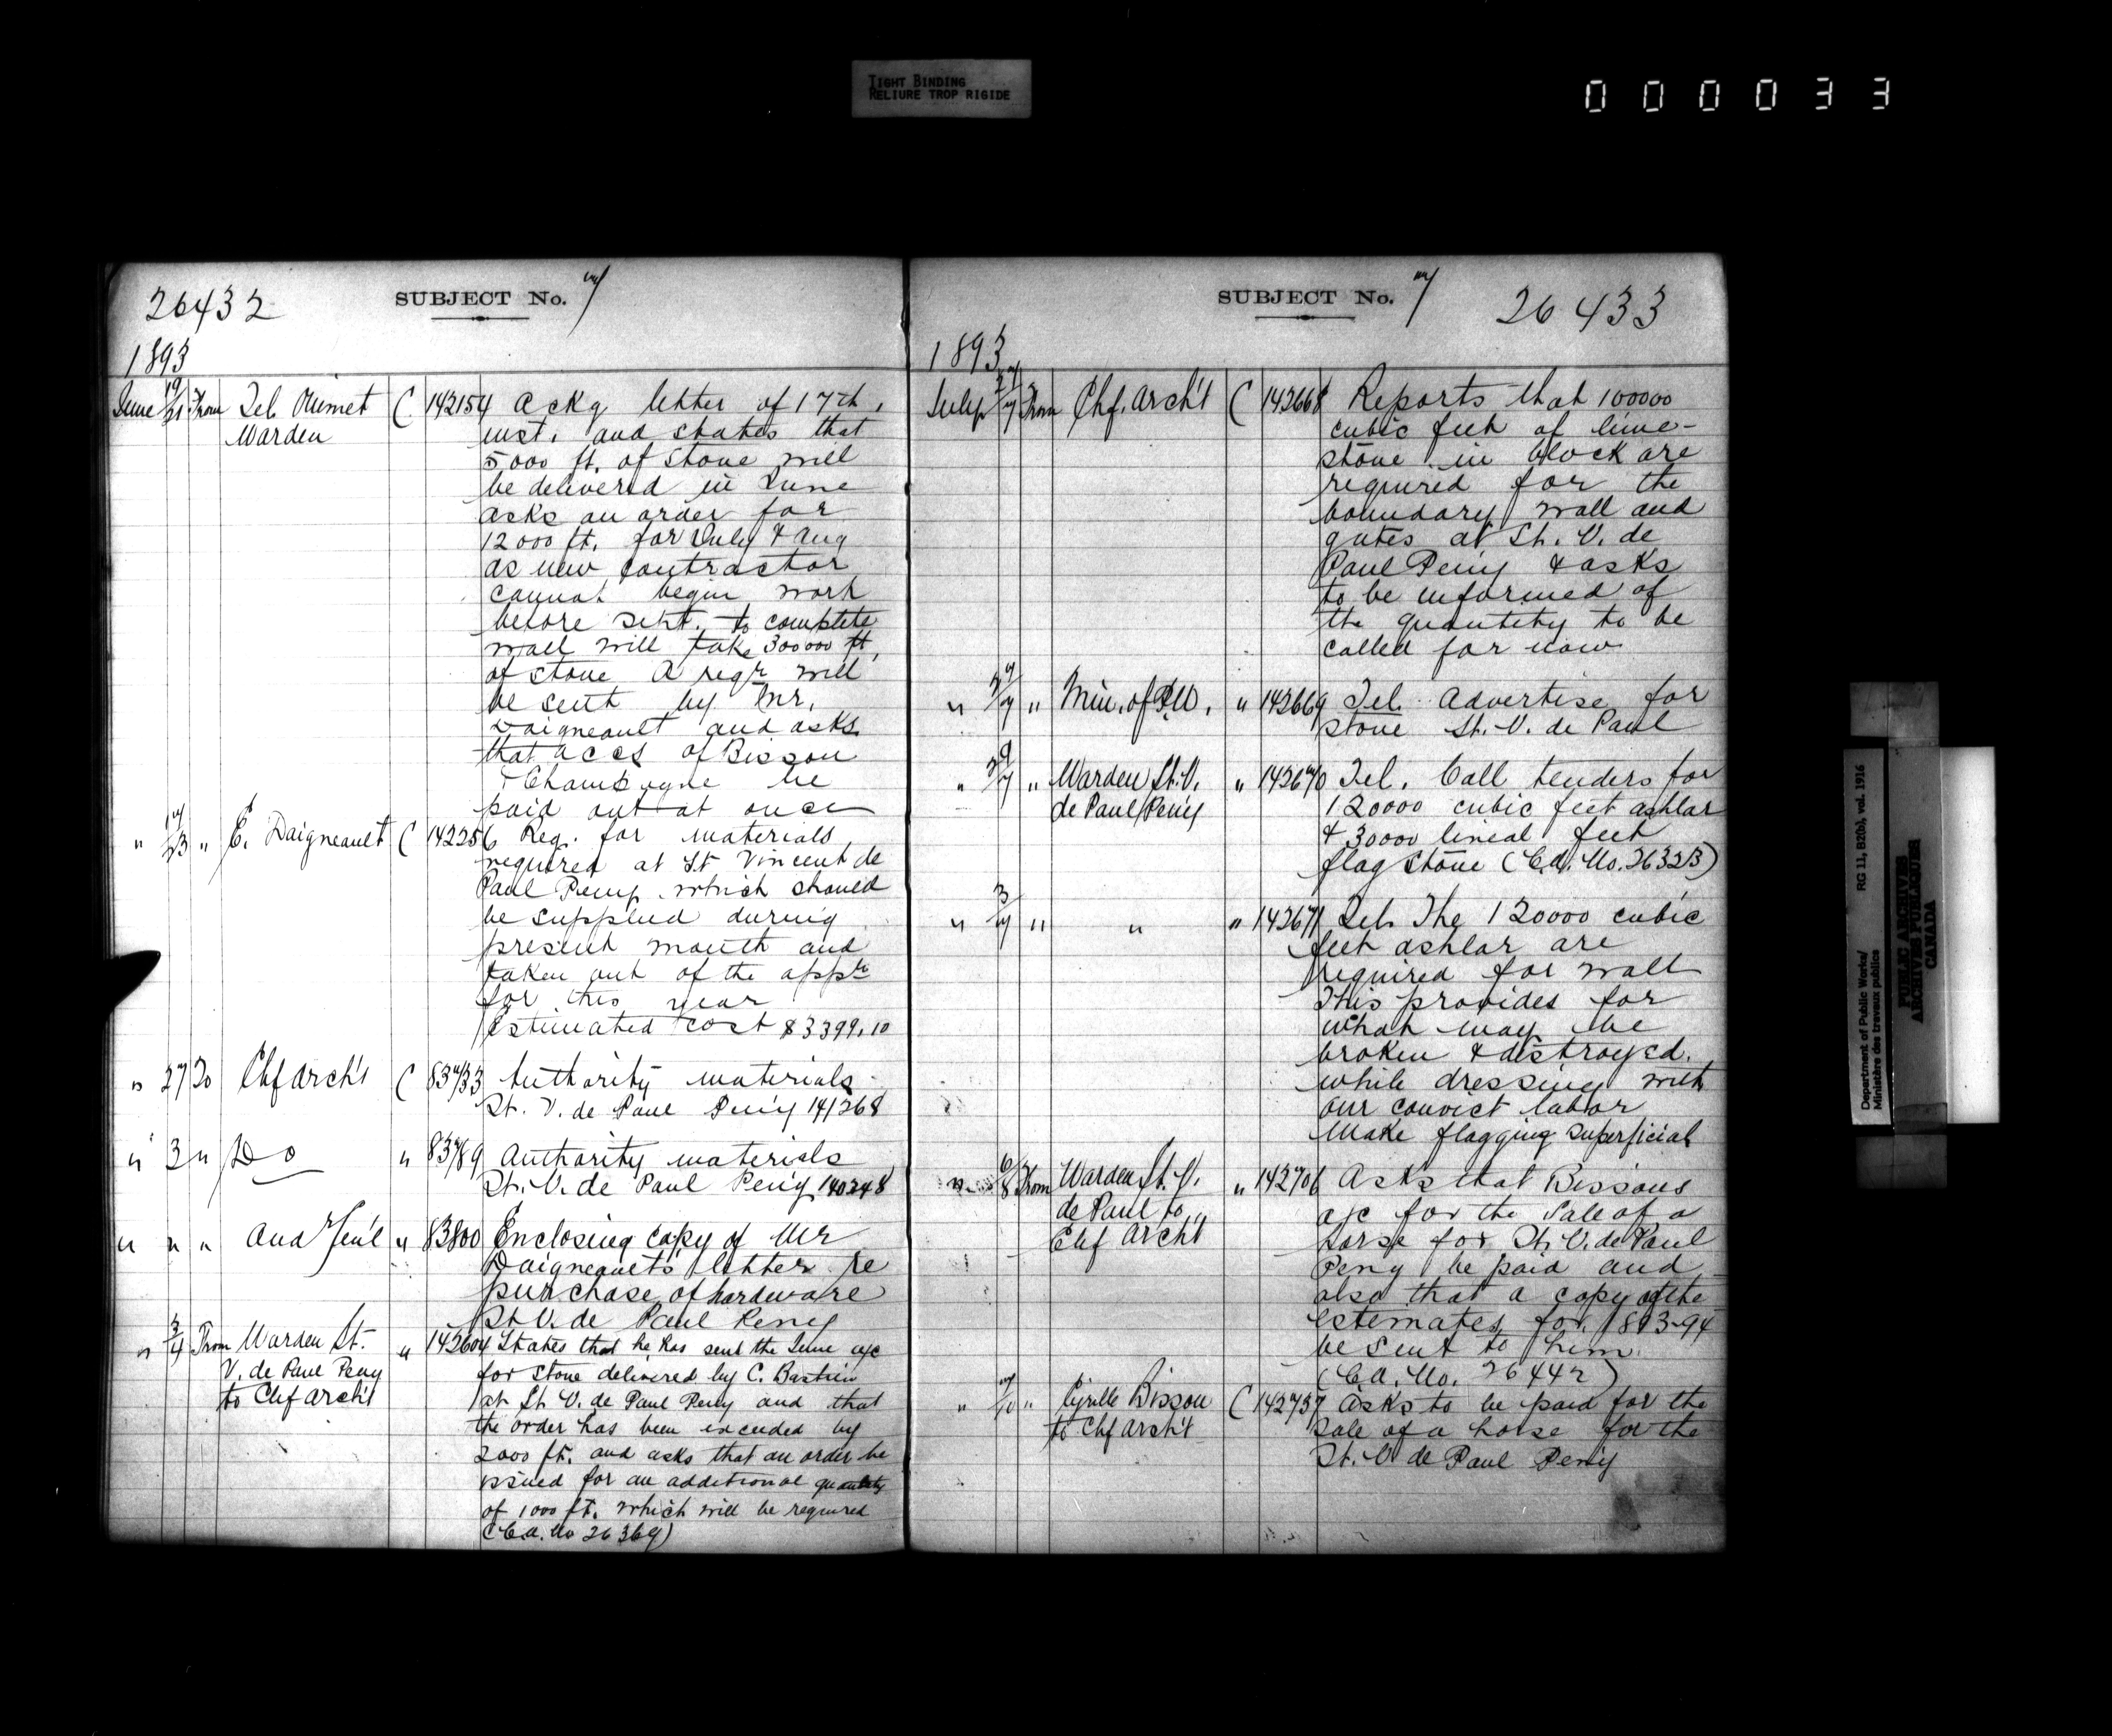 TIGHT BINDING
RELIURE TROP RIGIDE
000033
26432
SUBJECT No. 7
1893
June 19/21 From Tel. Ouimet Warden C 142154 Ackg letter of 17th,
inst. and states that
5000 ft. of stone will
be delivered in June
asks an order for
12000 ft. for July & Aug
as new contractor
cannot begin work
before Sept. to complete
wall will take 300000 ft.
of stone A reqr will
be sent by Mr.
Daigneault and asks
that accs of Bisson
& Champagne be
paid out at once
" 17/23 " E. Daigneault C 142256 Req. for materials
required at St Vincent de
Paul Peny which should
be supplied during
present month and
taken out of the appn
for this year
Estimated cost $3399.10
" 27 To Chf Arch't C 83733 Authority materials
St. V. de Paul Pen'y 141268
" 3 " Do " 83789 Authority materials
St. V. de Paul Pen'y 140248
" " " Aud Gen'l " 83800 Enclosing copy of Mr
Daigneault's letter re
purchase of hardware
St V. de Paul Peny
" 3/4 From Warden St. V. de Paul Peny to Chf Arch't " 142604 States that he has sent the June a/c
for stone delivered by C. Bastien
at St V. de Paul Peny and that
the order has been exceeded by
2000 ft. and asks that an order be
issued for an additional quantity
of 1000 ft. which will be required
(Ed. No 26369)
SUBJECT No. 7
26433
1893
July From Chf. Arch't C 142668 Reports that 100000
cubic feet of lime-
stone in block are
required for the
boundary wall and
gates at St. V. de
Paul Pen'y & asks
to be informed of
the quantity to be
called for now
" " Min. of P.W. " 142669 Tel. Advertise for
stone St. V. de Paul
" " Warden St. V. de Paul Peny " 142670 Tel. Call tenders for
120000 cubic feet ashlar
& 30000 lineal feet
flag stone (Ed. No. 26323)
" 3/7 " " " 142671 Tel. The 120000 cubic
feet ashlar are
required for wall
This provides for
what may be
broken & destroyed
while dressing with
our convict labor
Make flagging superficial
" 6/8 From Warden St. V. de Paul to Chf Arch't " 142706 Asks that Bissons
a/c for the sale of a
horse for St. V. de Paul
Peny be paid and
also that a copy of the
estimates for 1893-94
be sent to him
(Ed. No. 26442)
" 7/10 " Cyrille Bisson to Chf Arch't C 142737 Asks to be paid for the
sale of a horse for the
St. V de Paul Pen'y
Department of Public Works/
Ministère des travaux publics
RG 11, B2(b), vol. 1916
PUBLIC ARCHIVES
ARCHIVES PUBLIQUES
CANADA